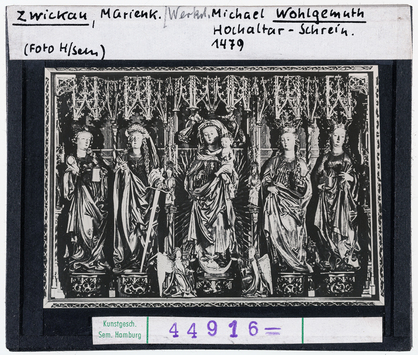 Zwickau, Marienk. /Werkst. Michael Wohlgemuth
Hochaltar-Schrein.
(Foto H/Sem) 1479
Kunstgesch.
Sem. Hamburg
44916=